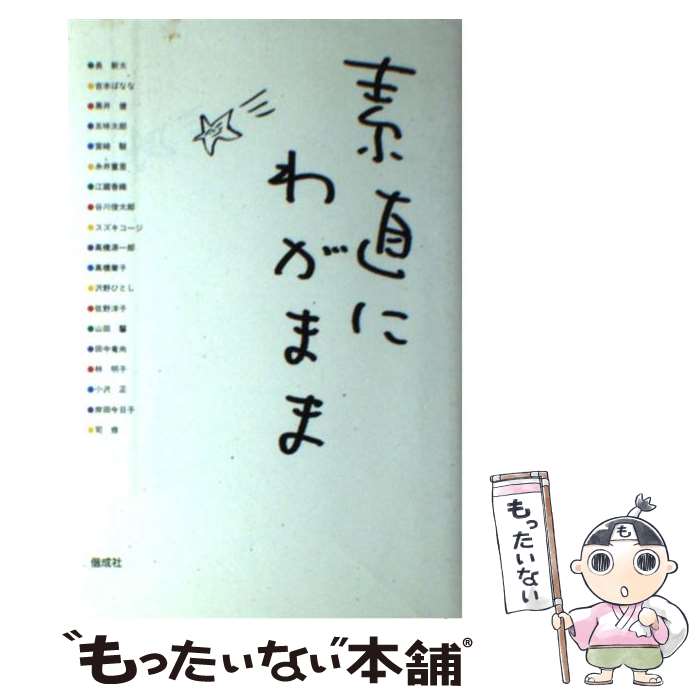 素直に
わがまま
長 新太
吉本ばなな
黒井 健
五味太郎
宮崎 駿
糸井重里
江國香織
谷川俊太郎
スズキコージ
高橋源一郎
高橋章子
沢野ひとし
佐野洋子
山田 馨
田中竜尚
林 明子
小沢 正
岸田今日子
司 修
偕成社
もったいない
も
"もったいない"本舗®